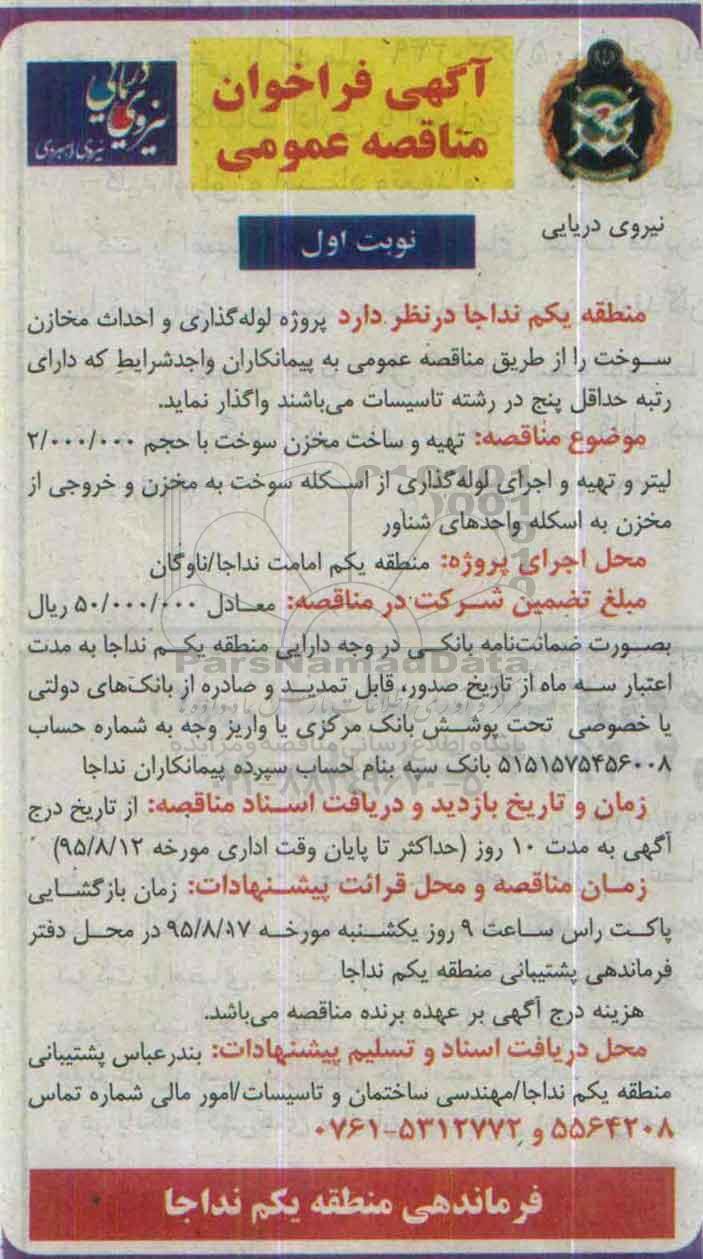 آگهی فراخوان
مناقصه عمومی
نیروی دریایی
نیروی راهبردی
نیروی دریایی
نوبت اول
منطقه یکم نداجا درنظر دارد پروژه لوله‌گذاری و احداث مخازن
سوخت را از طریق مناقصه عمومی به پیمانکاران واجدشرایط که دارای
رتبه حداقل پنج در رشته تاسیسات می‌باشند واگذار نماید.
موضوع مناقصه: تهیه و ساخت مخزن سوخت با حجم ۲/۰۰۰/۰۰۰
لیتر و تهیه و اجرای لوله‌گذاری از اسکله سوخت به مخزن و خروجی از
مخزن به اسکله واحدهای شناور
محل اجرای پروژه: منطقه یکم امامت نداجا/ناوگان
مبلغ تضمین شرکت در مناقصه: معادل ۵۰/۰۰۰/۰۰۰ ریال
بصورت ضمانت‌نامه بانکی در وجه دارایی منطقه یکم نداجا به مدت
اعتبار سه ماه از تاریخ صدور، قابل تمدید و صادره از بانک‌های دولتی
یا خصوصی تحت پوشش بانک مرکزی یا واریز وجه به شماره حساب
۵۱۵۱۵۷۵۴۵۶۰۰۸ بانک سپه بنام حساب سپرده پیمانکاران نداجا
زمان و تاریخ بازدید و دریافت اسناد مناقصه: از تاریخ درج
آگهی به مدت ۱۰ روز (حداکثر تا پایان وقت اداری مورخه ۹۵/۸/۱۲)
زمان مناقصه و محل قرائت پیشنهادات: زمان بازگشایی
پاکت راس ساعت ۹ روز یکشنبه مورخه ۹۵/۸/۱۷ در محل دفتر
فرماندهی پشتیبانی منطقه یکم نداجا
هزینه درج آگهی بر عهده برنده مناقصه می‌باشد.
محل دریافت اسناد و تسلیم پیشنهادات: بندرعباس پشتیبانی
منطقه یکم نداجا/مهندسی ساختمان و تاسیسات/امور مالی شماره تماس
۵۵۶۴۲۰۸ و ۵۳۱۲۷۷۲-۰۷۶۱
فرماندهی منطقه یکم نداجا
ParsNamadData
پایگاه اطلاع رسانی مناقصه و مزایده